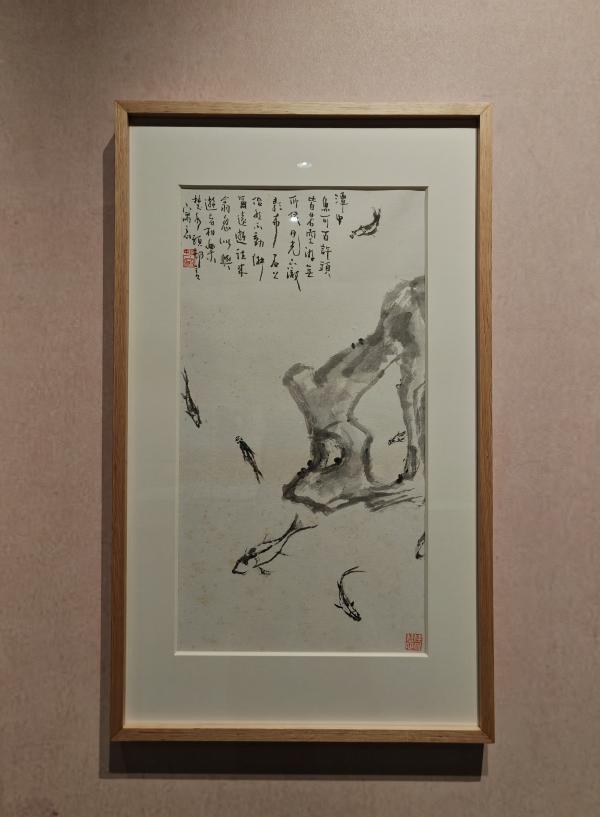 潭中
魚可百許頭
皆若空游無
所依日光下澈
影布石上
佁然不動俶
爾遠逝往來
翕忽似與
遊者相樂